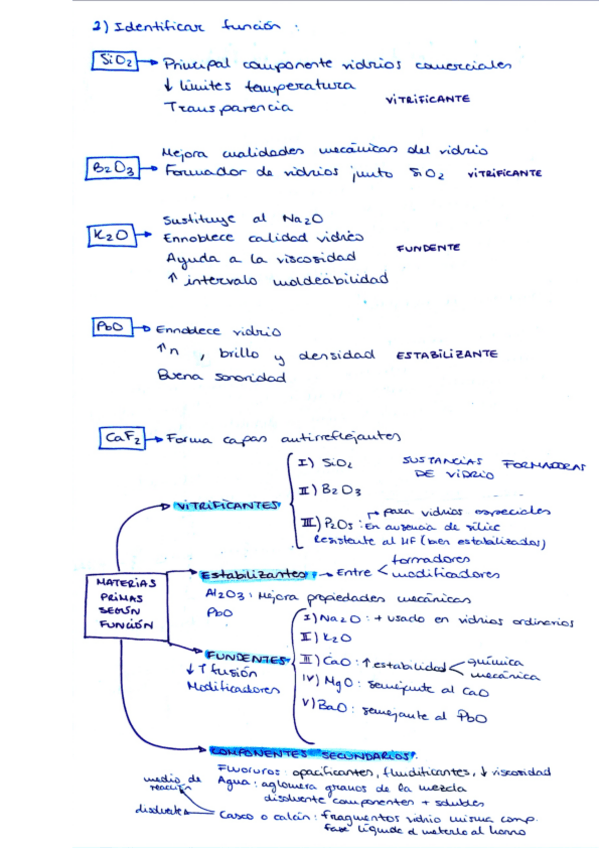 2) Identificar función :
SiO2 → Principal componente vidrios comerciales
↓ límites temperatura
Transparencia VITRIFICANTE
Mejora cualidades mecánicas del vidrio
B2O3 → Formador de vidrios junto SiO2 VITRIFICANTE
Sustituye al Na2O
K2O → Ennoblece calidad vidrio
Ayuda a la viscosidad FUNDENTE
↑ intervalo moldeabilidad
PbO → Ennoblece vidrio
↑n , brillo y densidad ESTABILIZANTE
Buena sonoridad
CaF2 → Forma capas antirreflejantes
I) SiO2 SUSTANCIAS FORMADORAS
DE VIDRIO
II) B2O3
VITRIFICANTES
→ para vidrios especiales
III) P2O5 : En ausencia de sílice
Resistente al HF (bien estabilizados)
formadores
Estabilizantes : → Entre < modificadores
Al2O3 : Mejora propiedades mecánicas
PbO
MATERIAS
PRIMAS
SEGÚN
FUNCIÓN
I) Na2O : + usado en vidrios ordinarios
II) K2O
FUNDENTES
↓ T fusión
Modificadores
III) CaO : ↑ estabilidad < química
mecánica
IV) MgO : semejante al CaO
V) BaO : semejante al PbO
COMPONENTES SECUNDARIOS :
Fluoruros : opacificantes, fluidificantes, ↓ viscosidad
medio de
reacción
Agua : aglomera granos de la mezcla
disolvente componentes + solubles
disolvente
Casco o calcín : fragmentos vidrio misma comp.
fase líquida al meterlo al horno